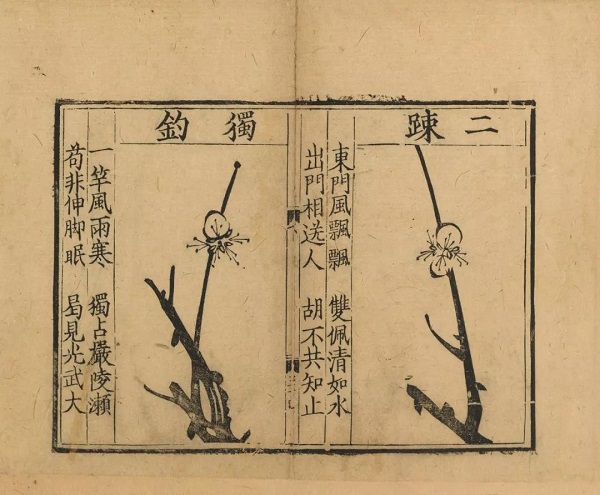 二踈
東門風飄飄　雙佩清如水
出門相送人　胡不共知止
獨釣
一竿風雨寒　獨占嚴陵瀨
苟非伸脚眠　曷見光武大